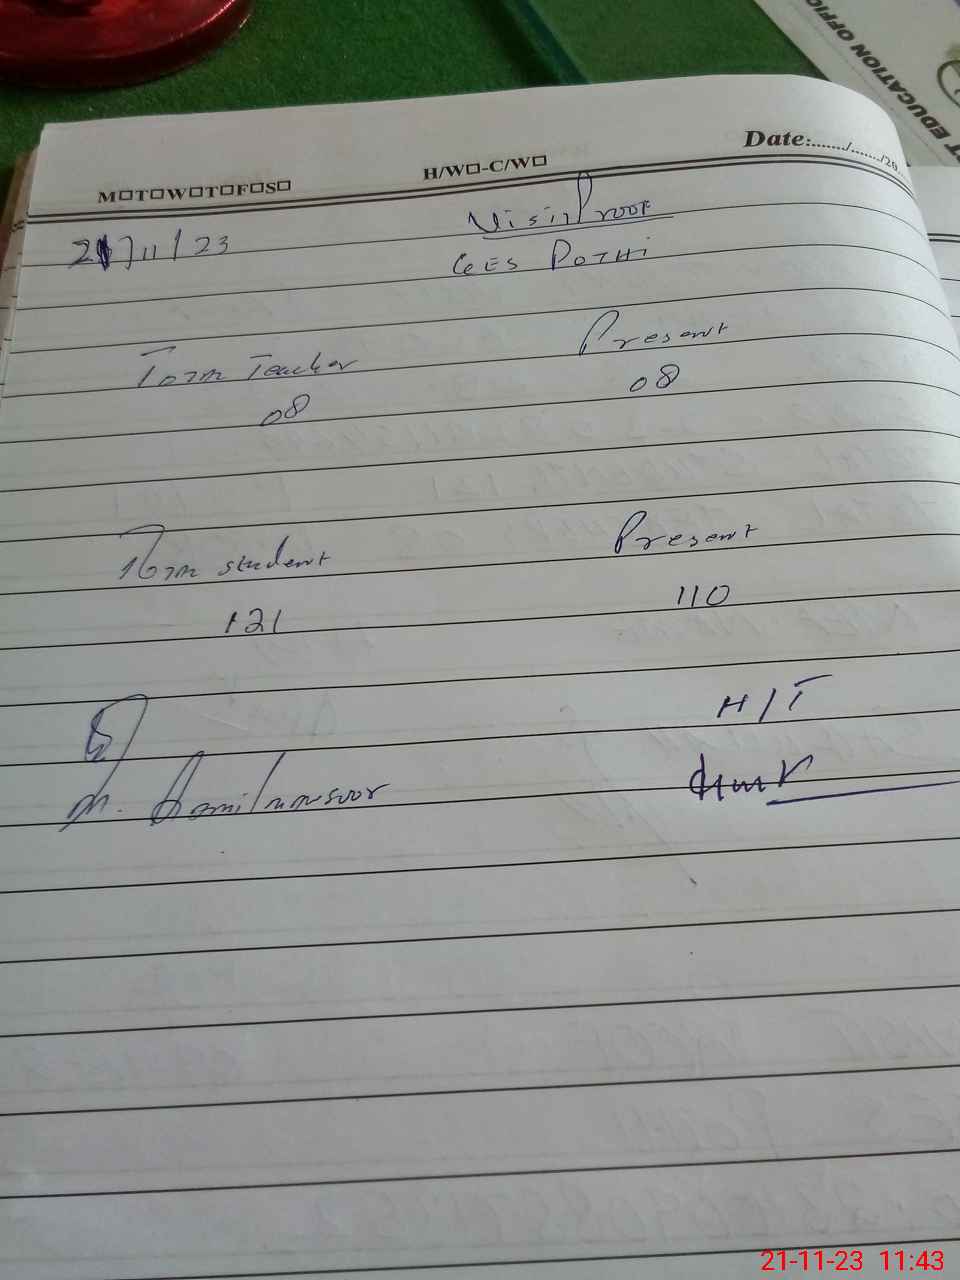 T EDUCATION OFFIC
Date:....../......./20
M□T□W□T□F□S□ H/W□-C/W□
21/11/23 Visit Proof
GES POTHI
Totm Teacher Present
08 08
Totm student Present
121 110
H/T
21-11-23 11:43